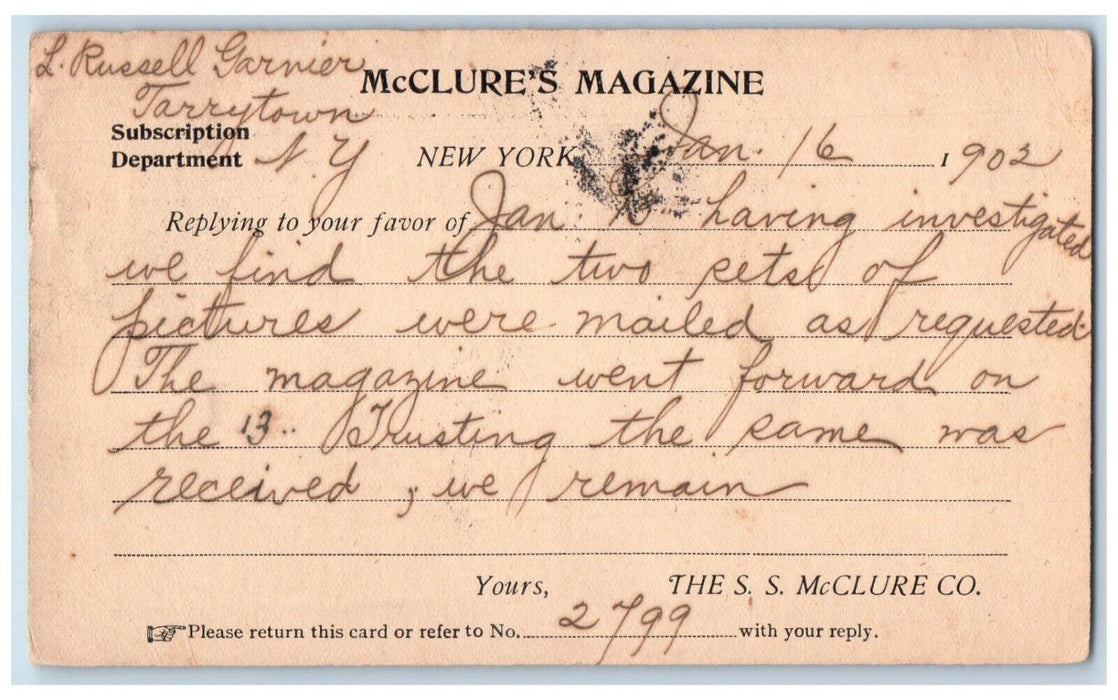 L. Russell Garnier
McCLURE'S MAGAZINE
Tarrytown
Subscription
Department N. Y NEW YORK Jan. 16 1902
Replying to your favor of Jan. having investigated
we find the two sets of
pictures were mailed as requested.
The magazine went forward on
the 13.. Trusting the same was
received, we remain
Yours, THE S. S. McCLURE CO.
☞Please return this card or refer to No. 2799 with your reply.